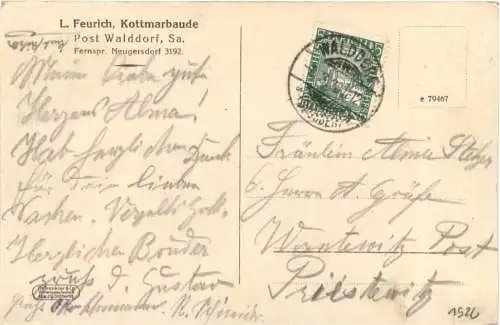 L. Feurich, Kottmarbaude
Post Walddorf, Sa.
Fernspr. Neugersdorf 3192.
Mein liebe gute
Herzens Alma!
Hab herzlichen Dank
für Dein lieben
Herzlichen
gruß d. Gustav
WALDDORF
e 79467
Fräulein Alma
b. Herrn A. Gräfe
Wantewitz Post
Priestewitz
1926